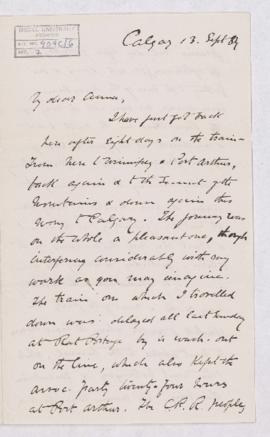 McGILL UNIVERSITY
ARCHIVES
ACC. NO. 909C/6
REF. 2
Calgary 13. Sept 84
My dear Anna,
I have just got back
here after eight days on the train –
from here to Winnipeg & Port Arthur,
back again & to the Summit of the
Mountains & down again this
way to Calgary. The journey was
on the whole a pleasant one, though
interfering considerably with my
work as you may imagine.
The train on which I travelled
down was delayed all last Sunday
at Rat Portage by a wash-out
on the line, which also kept the
Party twenty-four hours
at Port Arthur. The C.P.R. people